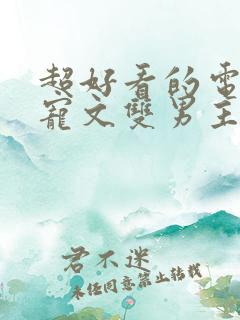 超好看的電
寵文雙男主
君不迷
未经同意禁止转载